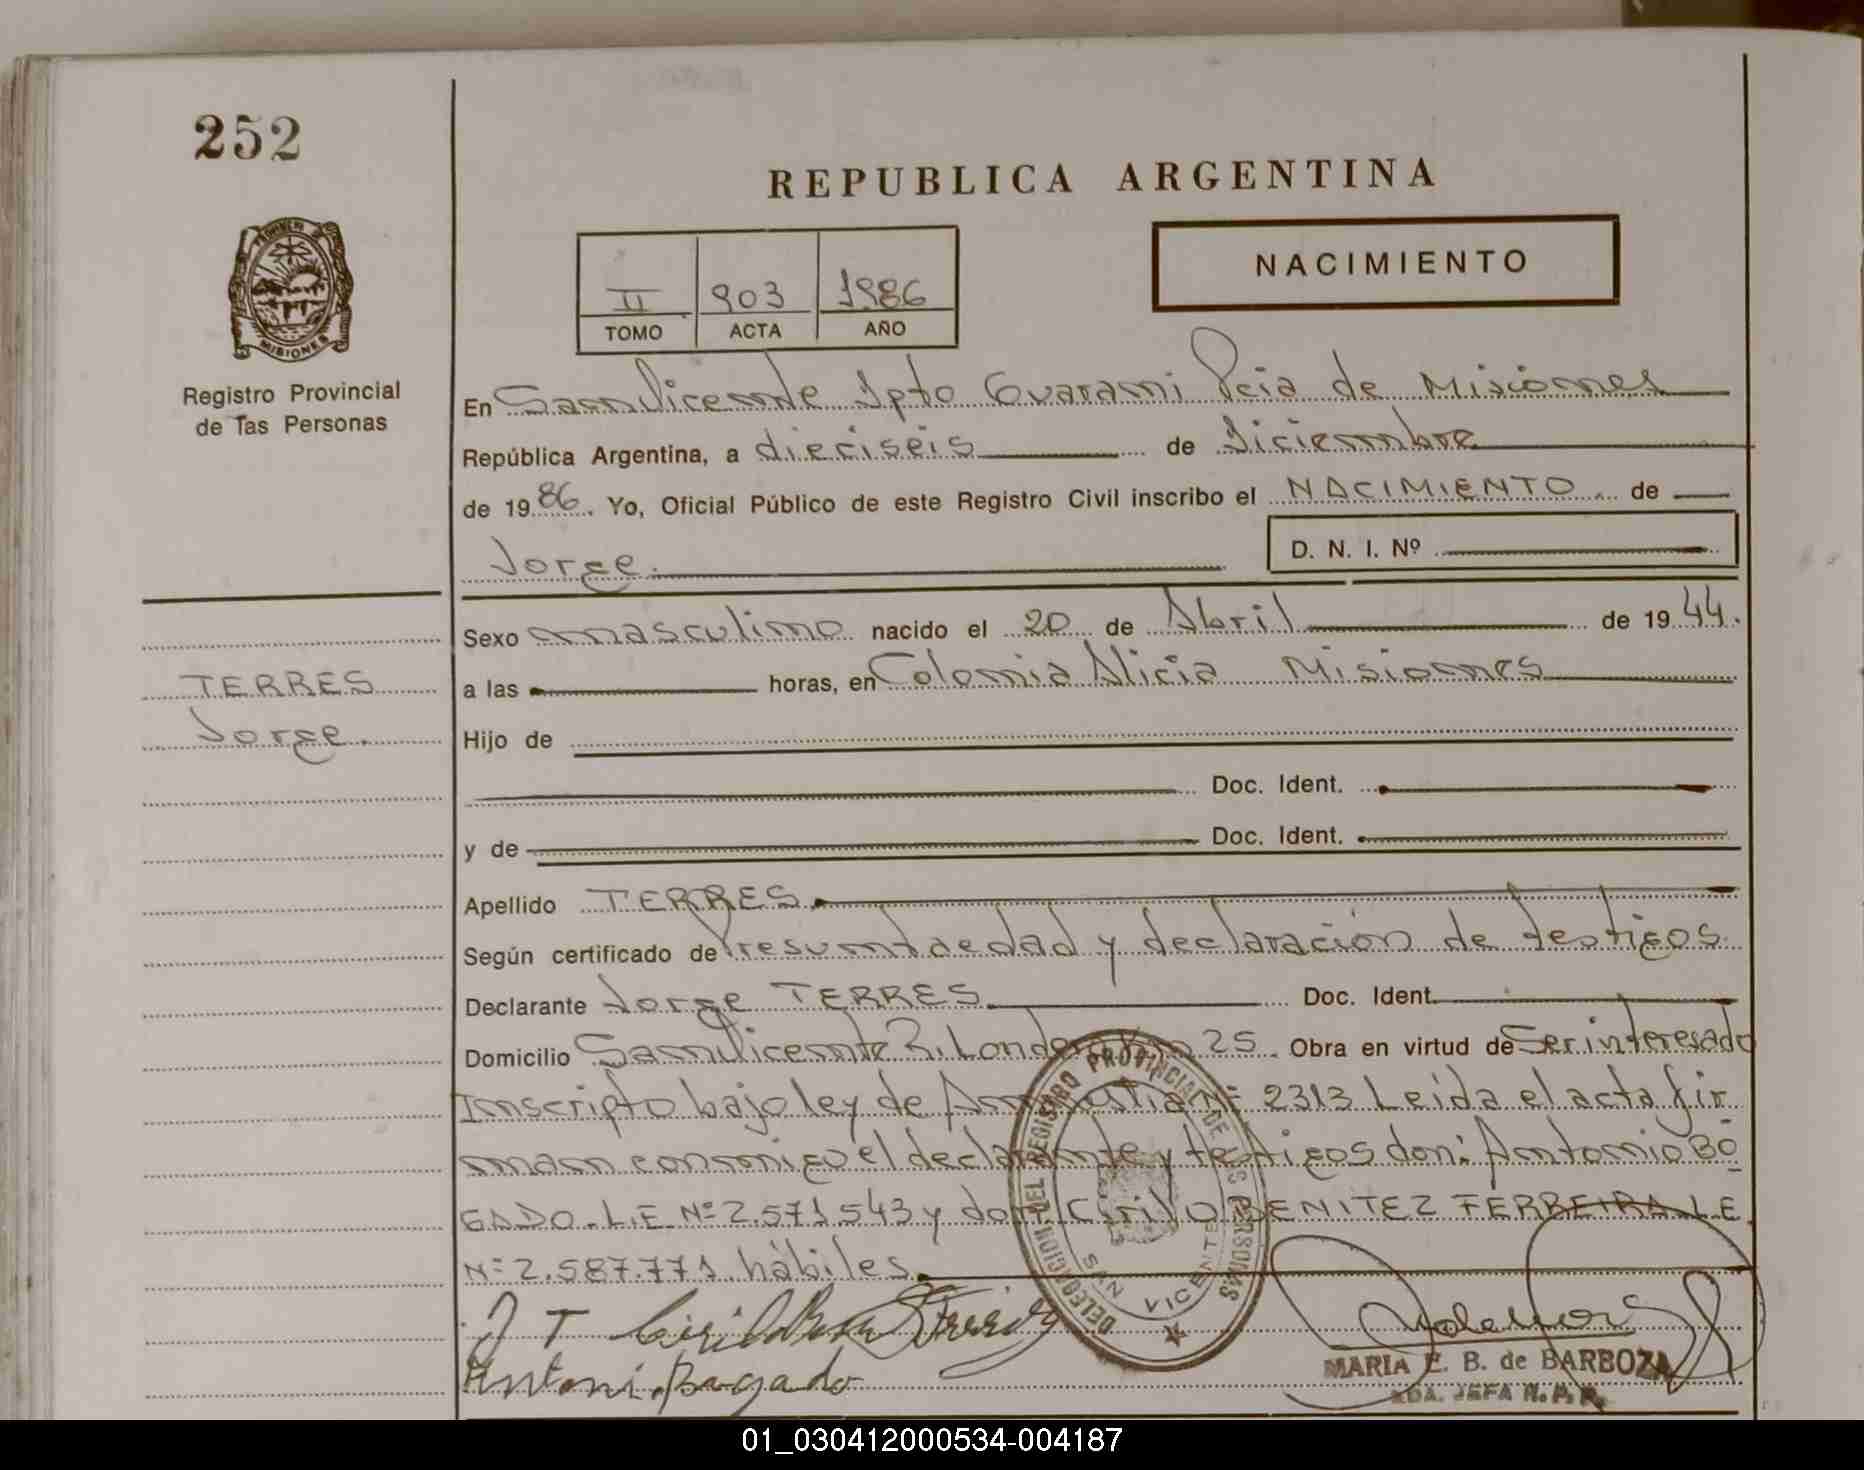 252
REPUBLICA ARGENTINA
NACIMIENTO
II 903 1986
TOMO ACTA AÑO
PROVINCIA MISIONES
Registro Provincial
de las Personas
En San Vicente Dpto Guarani Pcia de Misiones
República Argentina, a dieciseis de Diciembre
de 1986. Yo, Oficial Público de este Registro Civil inscribo el NACIMIENTO de
Jorge. D. N. I. Nº
Sexo masculino nacido el 20 de Abril de 1944.
a las horas, en Colonia Alicia Misiones
TERRES
Jorge.
Hijo de
Doc. Ident.
y de Doc. Ident.
Apellido TERRES
Según certificado de Presunta edad y declaración de testigos
Declarante Jorge TERRES Doc. Ident.
Domicilio San Vicente R. Londero Km 25 Obra en virtud de Ser interesado
Inscripto bajo ley de Amnistia Nº 2313 Leida el acta fir
man conmigo el declarante y testigos don: Antonio BO
GADO. L.E Nº 2.571543 y don: Cirilo BENITEZ FERREIRA L E
Nº 2.587.771 hábiles.
DELEGACION DEL REGISTRO PROVINCIAL DE LAS PERSONAS
SAN VICENTE
J T
Antoni Bogado
MARIA E. B. de BARBOZA
JEFA R. P. P.
01_030412000534-004187